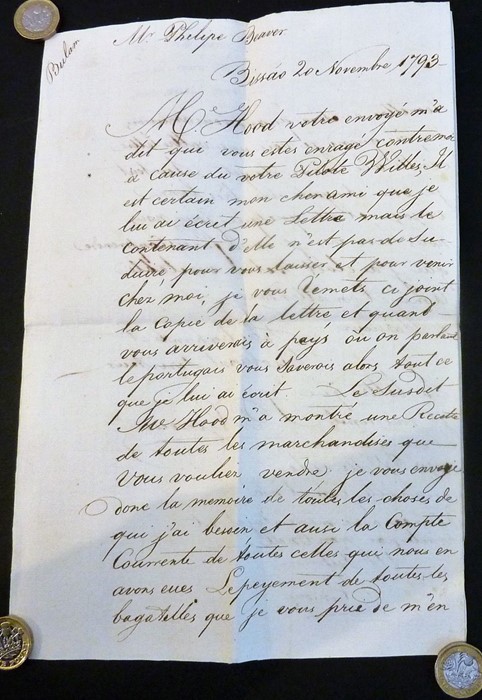 Mr Phelipe Beaver
Bulam
Bissáo 20 Novembre 1793
Mr Hood votre envoyé m'a
dit que vous estes enragé contre moi
à cause du votre Pilote Willes. Il
est certain mon cher ami que je
lui ai écrit une Lettre mais le
contenant d'elle n'est pas de Se-
duire pour vous laisser et pour venir
chez moi, je vous remets ci joint
la Copie de la lettre et quand
vous arriverais à pays où on parlait
le portugais vous Saverois alors tout ce
que je lui ai écrit. Le Susdit
Mr. Hood m'a montré une Recette
de toutes les marchandises que
vous vouliez vendre, je vous envoye
donc la memoire de toutes les choses de
qui j'ai besoin et ausi la Compte
Courrente de toutes celles qui nous en
avons eues Le peyement de toutes les
bagatelles que je vous prie de m'en